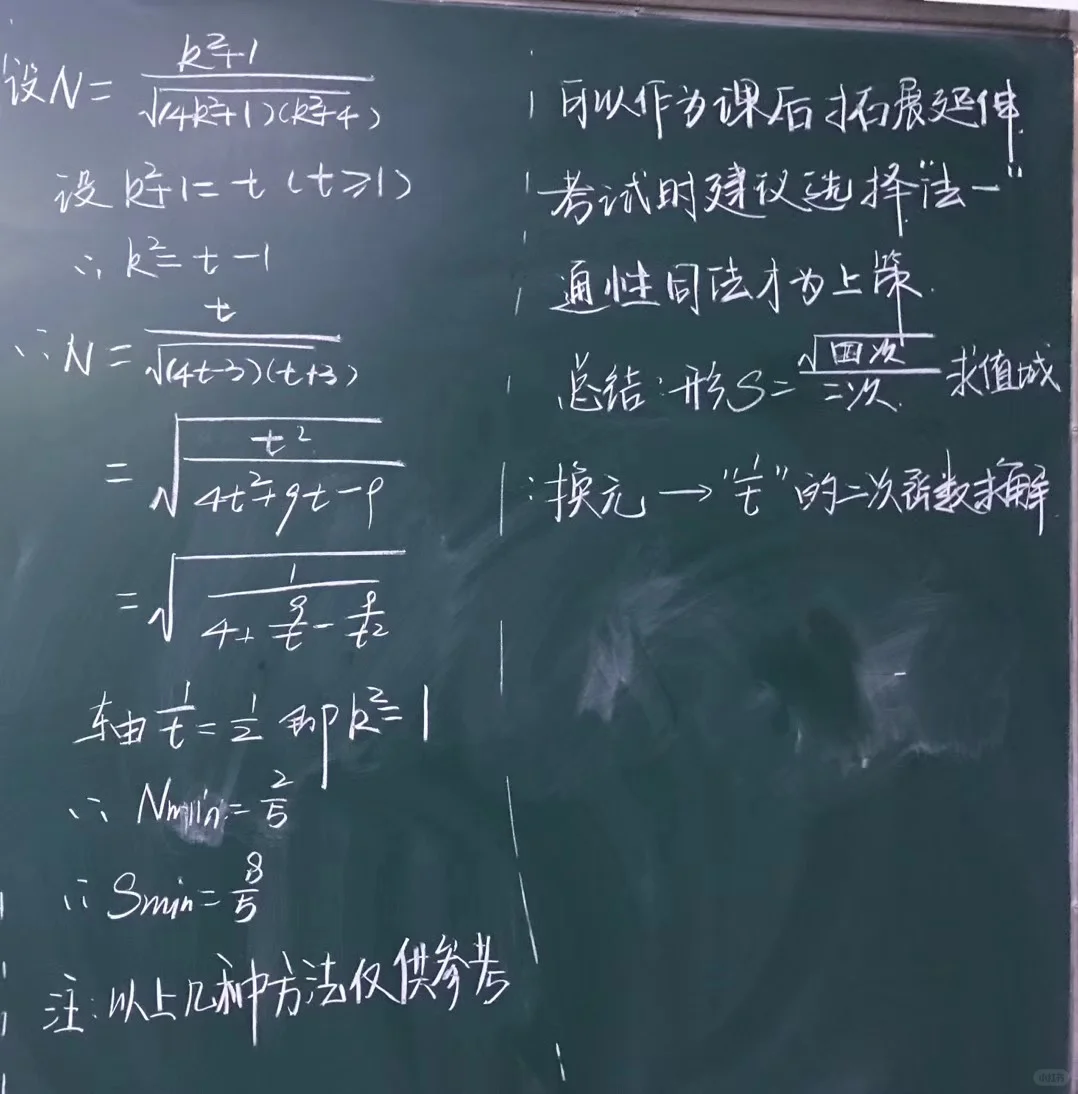 设N = \frac{k²+1}{\sqrt{(4k²+1)(k²+4)}}
设 k²+1 = t (t≥1)
∴ k² = t-1
∴ N = \frac{t}{\sqrt{(4t-3)(t+3)}}
= \sqrt{\frac{t²}{4t²+9t-9}}
= \sqrt{\frac{1}{4+\frac{9}{t}-\frac{9}{t²}}}
轴 \frac{1}{t} = \frac{1}{2} 即 k² = 1
∴ Nmin = \frac{2}{5}
∴ Smin = \frac{8}{5}
注:以上几种方法仅供参考
可以作为课后拓展延伸
考试时建议选择"法一"
通性同法才为上策.
总结:形S = \frac{\sqrt{四次}}{二次} 求值域
:换元 → "\frac{1}{t}" 的二次函数求解.
小红书